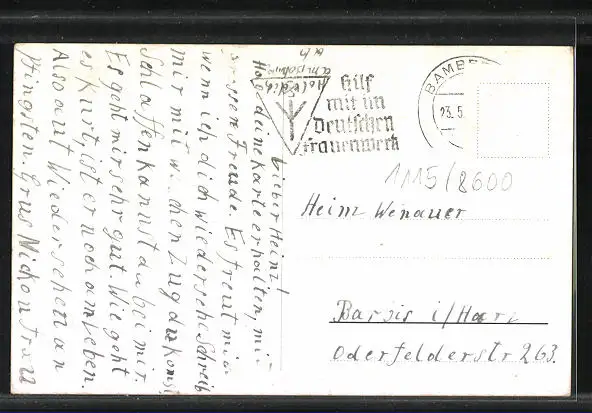 Lieber Heinz!
Hab deine Karte erhalten, mit
grossen Freude. Es freut mich
wenn ich dich wiedersehe Schreib
mir mit Zug du konst
Schlaffen kannst du bei mir.
Es geht mir sehr gut. Wie geht
es Kurt, ist er noch am Leben.
Also auf Wiedersehen an
Pfingsten. Grus
Hilf
mit im
Deutschen
Frauenwerk
BAMBE
23.5
1115/8600
Heinz Wenauer
i/Harz
Oderfelderstr 263.